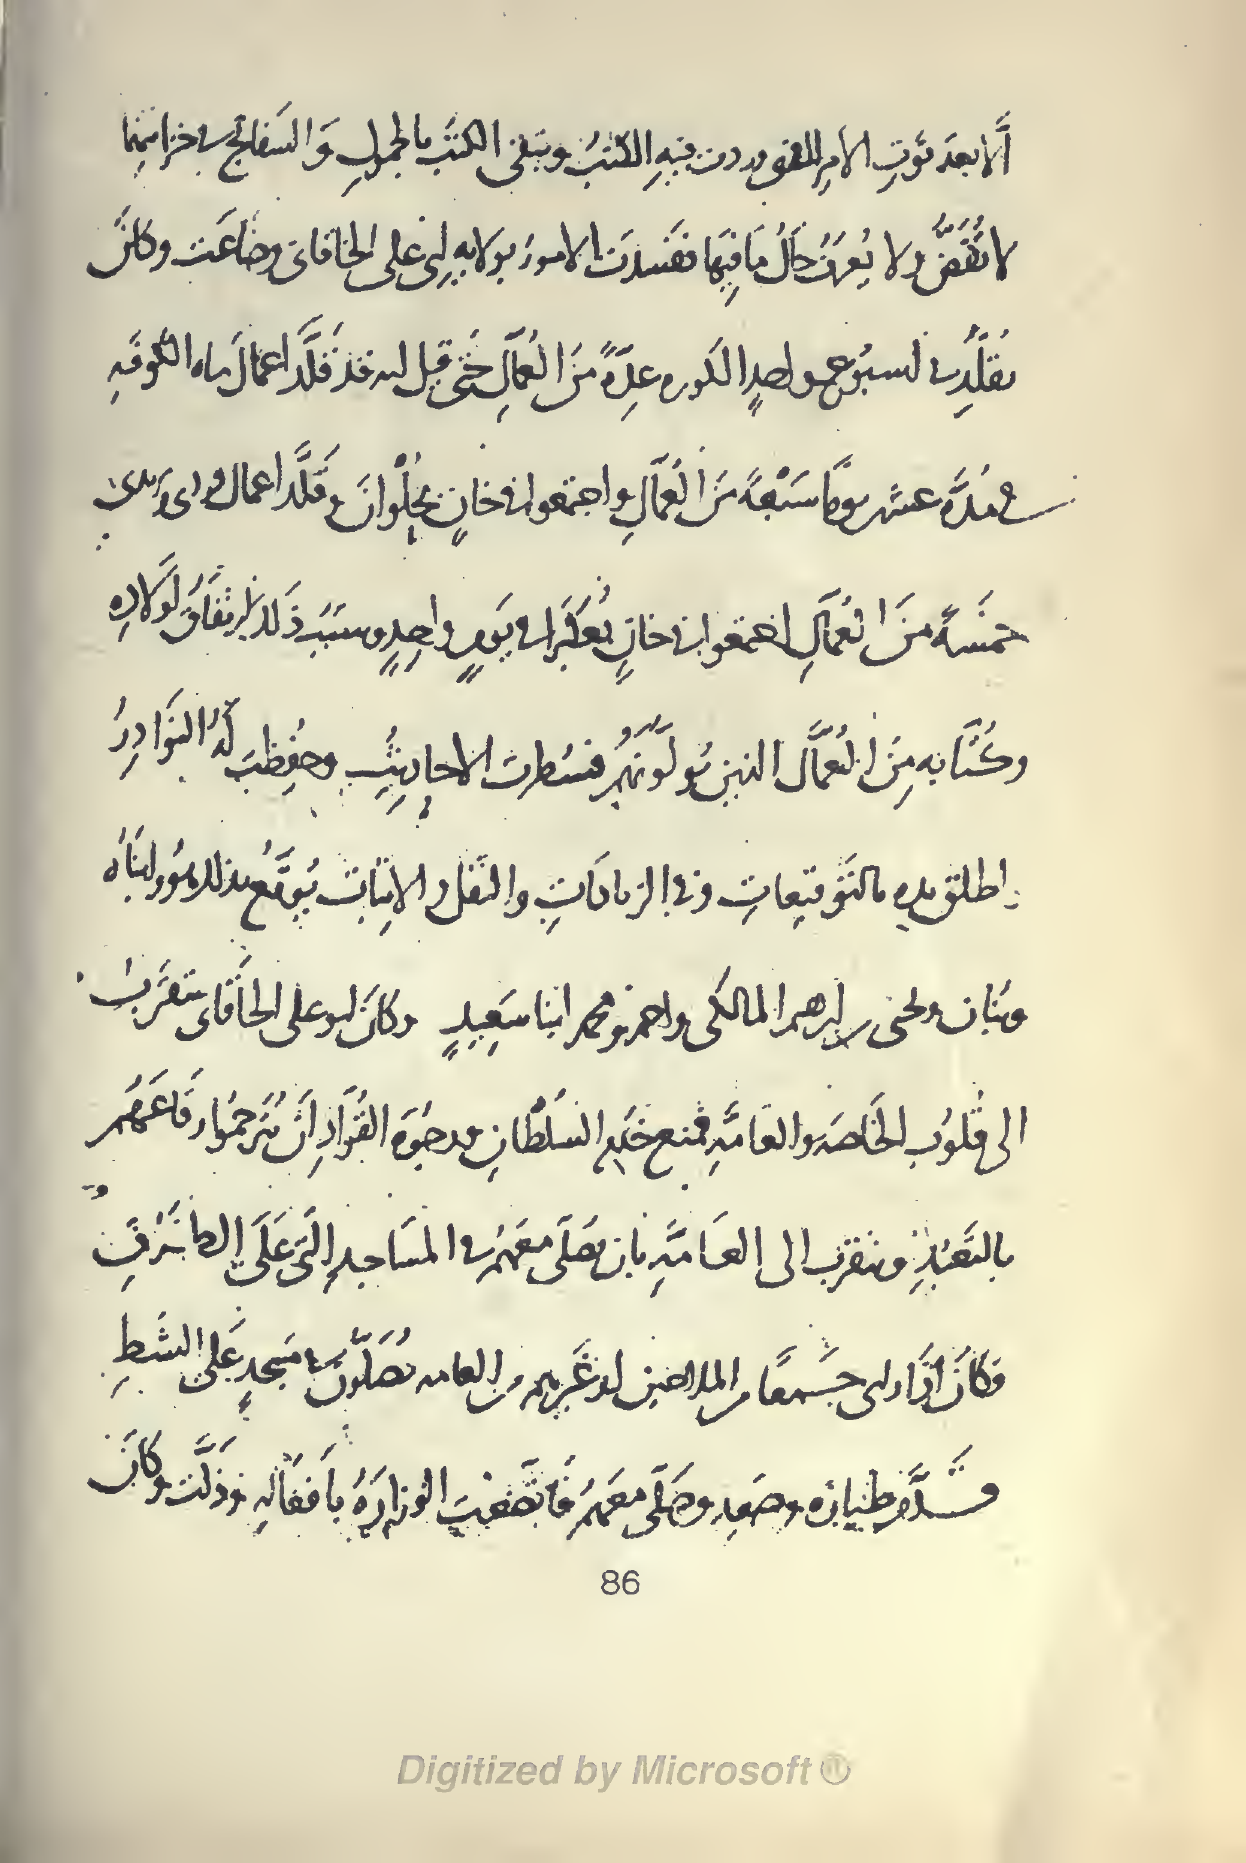 اَلّا بعدَ فَوتِ الامرِ الذى وردت فيهِ الكتبُ وتبقى الكتبُ بالحمولِ وَالسفاتج فى خزائنها
لا تُفَضُّ ولا يُعرَفُ حَالُ مَا فيهَا ففسدَت الامورُ بولايه ابى على الخاقانى وضاعَت وكانَ
يُقلِّدُ فى اسبوع واحدٍ الكوره عدّةً منَ العُمّالِ حَتّى قيل انه قد قَلَّد اعمَالَ ماه الكوفَهِ
فى مُدَّه عشرين يومًا سَبْعَةً مِنَ العُمّالِ واجتمعوا فى خانٍ بحُلْوانَ وقَلَّد اعمال
خمسَةً منَ العُمّالِ اجتمعوا فى خانٍ بعُكبَرا فى يَومٍ واحِدٍ وسَبَبُ ذَلك ارتفاق اَولاده
وكُتّابه مِنَ العُمّال الذين يُوَلّونهُم فسُطرت الاحاديثُ وحفِظت لَهُ النوَادِرُ
اطلق يده بالتَوقيعاتِ وفى الزياداتِ والنقل والاثباتِ يُوقّع بذلك هُو وابناهُ
وبُنان ويحيى بن ابرهيم المالكى واحمد ومحمد ابنا سَعيدٍ وكانَ ابو على الخاقانى يتقرّبُ
الى قلوُب الخَاصّهِ والعَامّهِ فمنع خَدَم السُلطَانِ ووجُوه القُوّادِ اَن يُترجمُوا رقَاعَهُم
بالتَعبّدِ ويتقرب الى العَامّهِ بان يُصَلّى معَهُم فى المسَاجدِ التى عَلَى الطريق
فكانَ اذَا راى جَمعًا من الملاحين او غَيرهم من العامه يُصَلّون فى مَسجدٍ عَلى الشَطِ
قدّم طيّاره وصَعِد وصَلّى معهمُ فاتّضعَت الوزارَهُ باَفعَالهِ وذَلّت وكانَ
86
Digitized by Microsoft ®